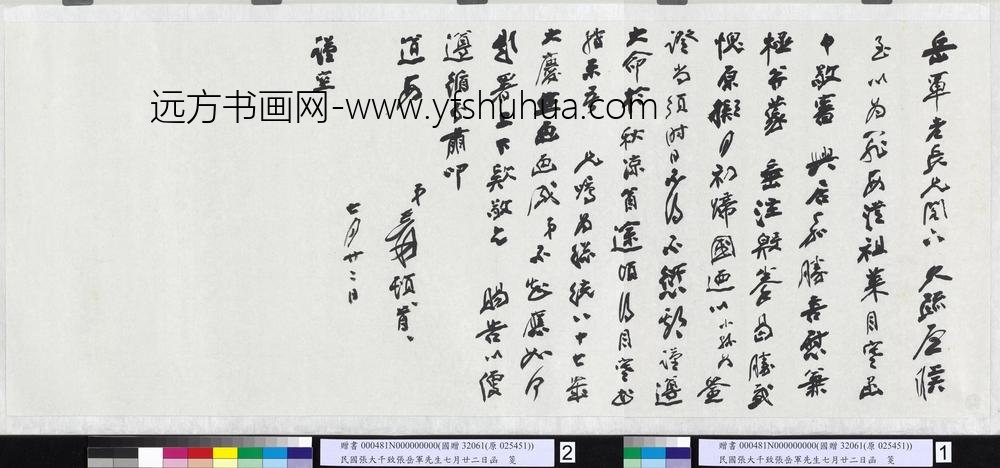 岳軍老長兄閣下久疏居候
至以為罪頃從祖萊目寒函
中敬審興居多勝喜慰無
極并蒙垂注殷拳曷勝感
愧原擬月初歸國迺以小孫為簽
證尚須時日不得不愆期謹遵
大命於秋涼首途頃得目寒書
指示吾兄囑為總統八十七嵩
大慶畫畫成弟不知應如何
題署上下款敬乞賜告以便
遵循肅叩
道安
弟爰頓首
七月廿二日
謹空
远方书画网-www.yfshuhua.com
贈書 000481N000000000(國贈 32061(原 025451))
民國張大千致張岳軍先生七月廿二日函 箋
2
贈書 000481N000000000(國贈 32061(原 025451))
民國張大千致張岳軍先生七月廿二日函 箋
1